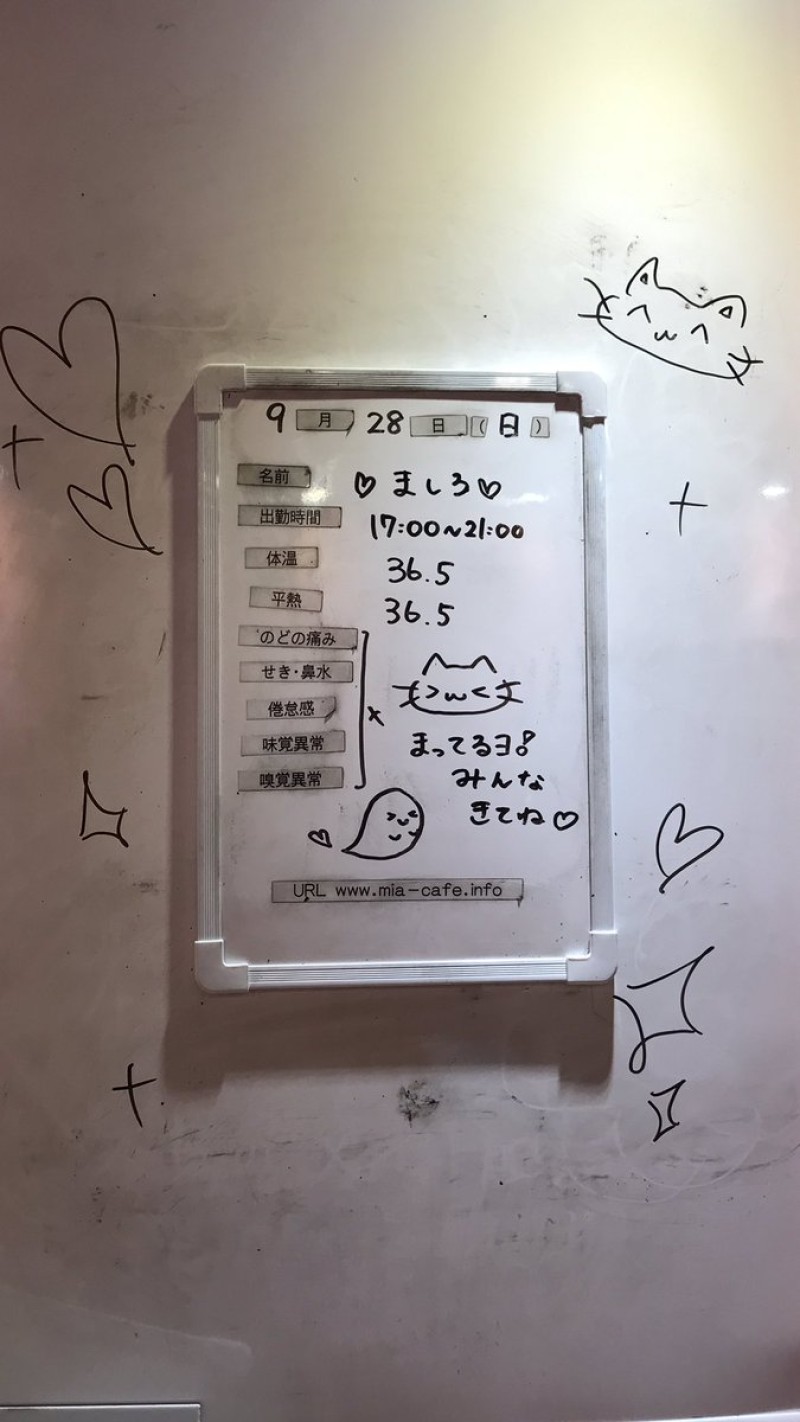 9月28日(日)
名前 ♡ましろ♡
出勤時間 17:00~21:00
体温 36.5
平熱 36.5
のどの痛み
せき・鼻水
倦怠感 ×
味覚異常
嗅覚異常
まってるヨ!
みんな
きてね♡
URL www.mia-cafe.info